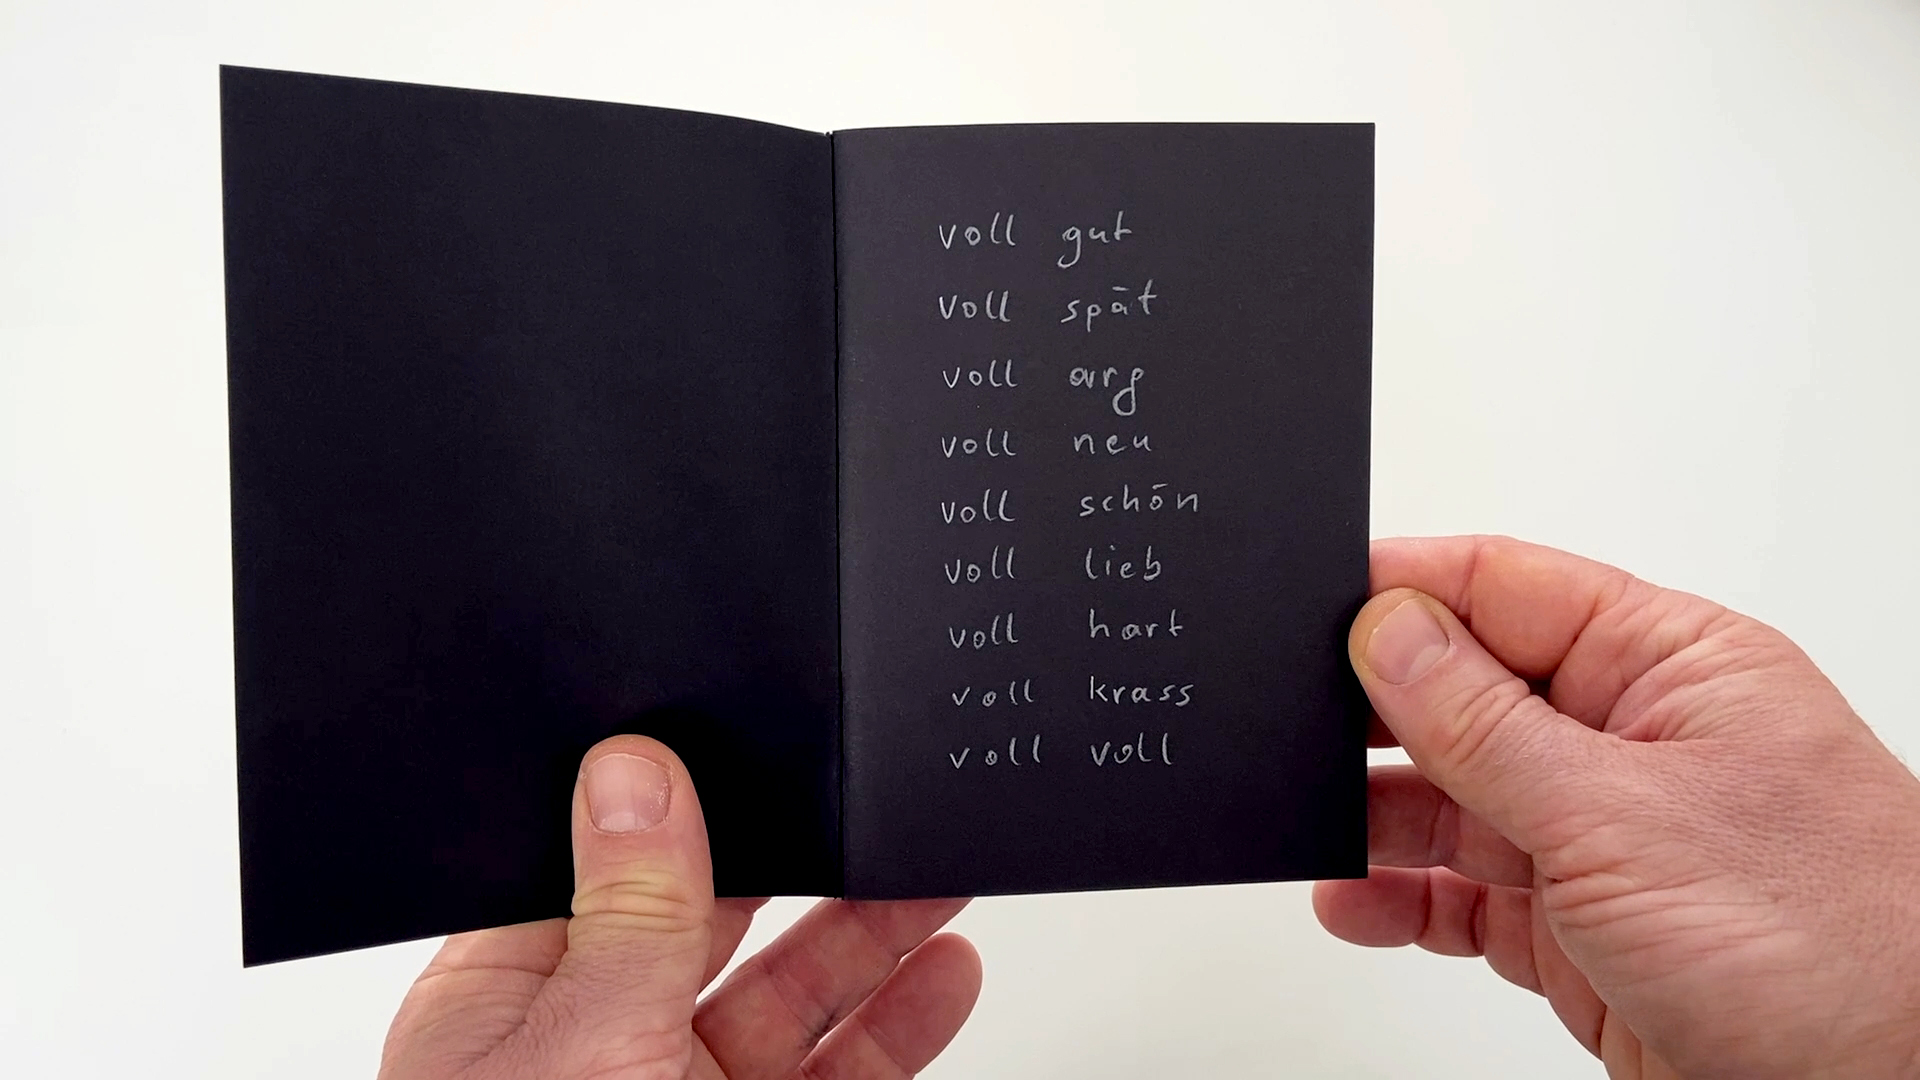 voll gut
voll spät
voll arg
voll neu
voll schön
voll lieb
voll hart
voll krass
voll voll